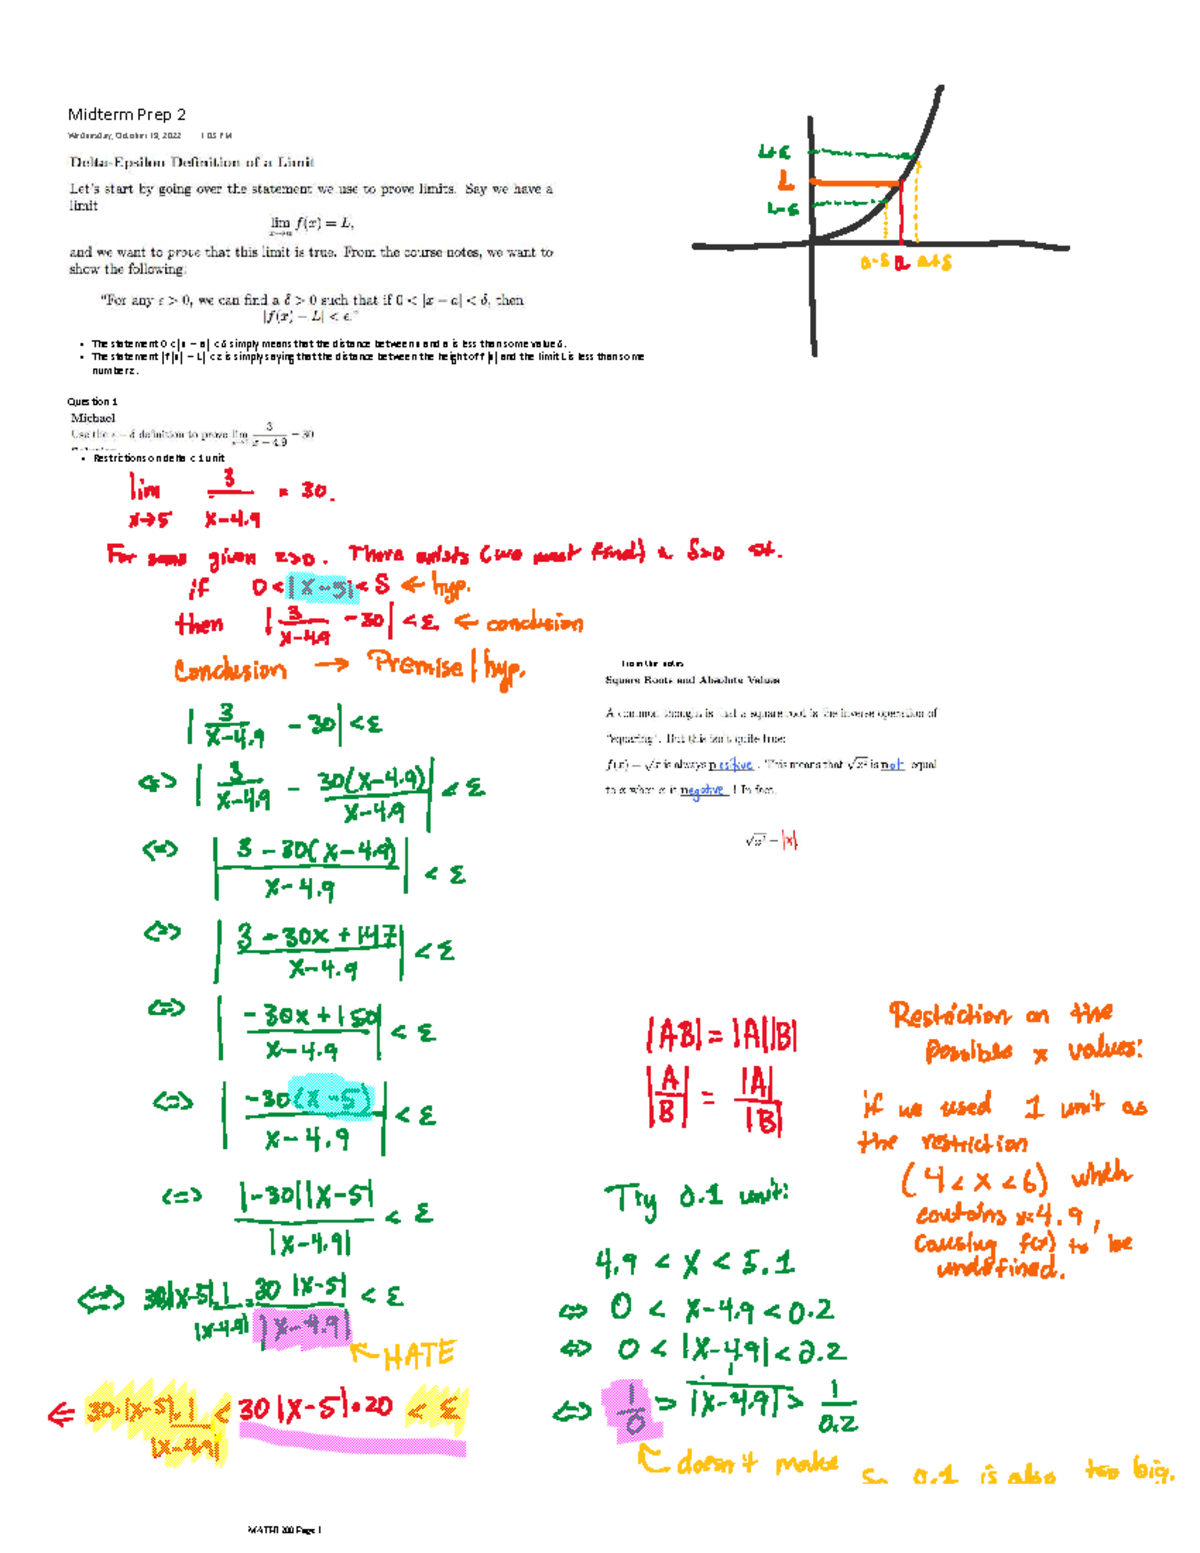 Midterm Prep 2
Wednesday, October 19, 2022 1:03 PM
Delta-Epsilon Definition of a Limit
Let's start by going over the statement we use to prove limits. Say we have a
limit
lim f(x) = L,
x→a
and we want to prove that this limit is true. From the course notes, we want to
show the following:
"For any ε > 0, we can find a δ > 0 such that if 0 < |x − a| < δ, then
|f(x) − L| < ε."
• The statement 0 < |x − a| < δ simply means that the distance between x and a is less than some value δ.
• The statement |f(x) − L| < ε is simply saying that the distance between the height of f(x) and the limit L is less than some
number ε.
L+ε
L
L-ε
a-δ a a+δ
Question 1
Michael
Use the ε − δ definition to prove lim 3/(x − 4.9) = 30
• Restrictions on delta < 1 unit
lim 3/(x-4.9) = 30.
x→5
For some given ε>0. There exists (we must find) a δ>0 st.
if 0 < |x-5| < δ ← hyp.
then |3/(x-4.9) - 30| < ε ← conclusion
Conclusion → Premise / hyp.
|3/(x-4.9) - 30| < ε
⇔ |3/(x-4.9) - 30(x-4.9)/(x-4.9)| < ε
⇔ |(3-30(x-4.9))/(x-4.9)| < ε
⇔ |(3-30x+147)/(x-4.9)| < ε
⇔ |(-30x+150)/(x-4.9)| < ε
⇔ |-30(x-5)/(x-4.9)| < ε
⇔ |-30||x-5|/|x-4.9| < ε
⇔ 30|x-5|·1/|x-4.9| = 30|x-5|/|x-4.9| < ε
← HATE
⇐ 30·|x-5|·1/|x-4.9| < 30|x-5|·20 < ε
From the notes
Square Roots and Absolute Values
A common thought is that a square root is the inverse operation of
"squaring". But this isn't quite true:
f(x) = √x is always positive. This means that √x² is not equal
to x when x is negative! In fact,
√x² = |x|
|AB| = |A||B|
|A/B| = |A|/|B|
Try 0.1 unit:
4.9 < x < 5.1
⇔ 0 < x-4.9 < 0.2
⇔ 0 < |x-4.9| < 0.2
⇔ 1/0 > 1/|x-4.9| > 1/0.2
doesn't make
so 0.1 is also too big.
Restriction on the
possible x values:
if we used 1 unit as
the restriction
(4 < x < 6) which
contains x=4.9,
causing f(x) to be
undefined.
MATH 200 Page 1